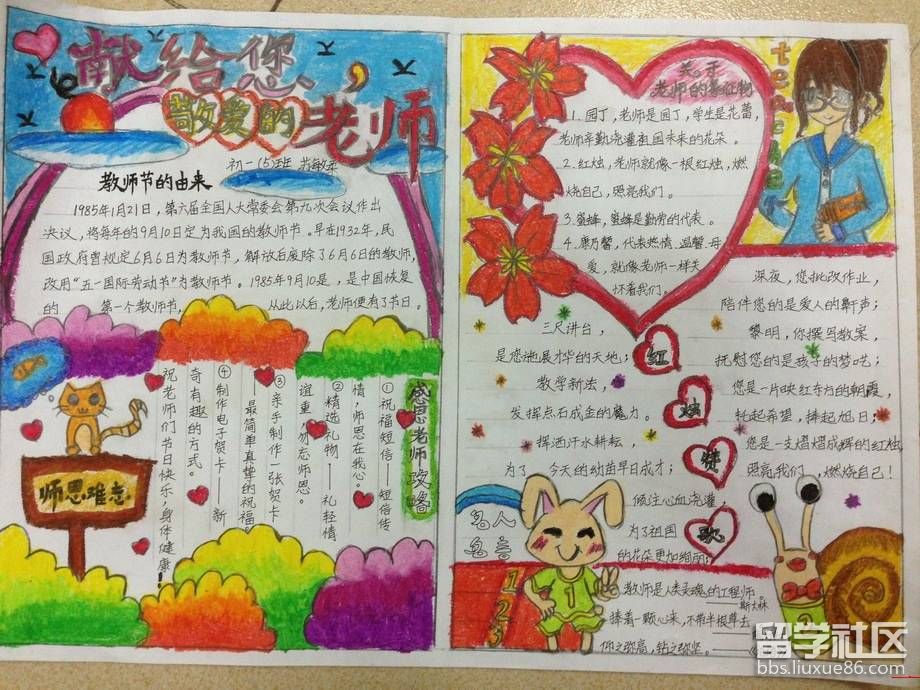 献给您、
敬爱的老师
初一(5)班
教师节的由来
1985年1月21日，第六届全国人大常委会第九次会议作出
决议，将每年的9月10日定为我国的教师节。早在1932年，民
国政府曾规定6月6日为教师节，解放后废除了6月6日的教师节，
改用“五一国际劳动节”为教师节。1985年9月10是，是中国恢复
的 第一个教师节， 从此以后，老师便有了节日。
感恩老师攻略
①祝福短信——短信传
情，师恩在我心。
②精选礼物——礼轻情
谊重，勿忘师恩。
③亲手制作一张贺卡
——最简单真挚的祝福
④制作电子贺卡——新
奇有趣的方式。
祝老师们节日快乐、身体健康！
师恩难忘
关于
老师的象征物
1.园丁，老师是园丁，学生是花蕾，
老师辛勤浇灌祖国未来的花朵。
2.红烛，老师就像一根红烛，燃
烧自己，照亮我们。
3.蜜蜂，蜜蜂是勤劳的代表。
4.康乃馨，代表热情、温馨、母
爱，就像老师一样关
怀着我们。
三尺讲台，
是您施展才华的天地；
教学新法，
发挥点石成金的魔力。
挥洒汗水耕耘，
为了 今天的幼苗早日成才；
倾注心血浇灌，
为了祖国
的花朵更加绚丽；
红
烛
赞
歌
深夜，您批改作业，
陪伴您的是爱人的鼾声；
黎明，你撰写教案，
抚慰您的是孩子的梦呓；
您是一片映红东方的朝霞
托起希望，捧起旭日；
您是一支熠熠成辉的红烛，
照亮我们，燃烧自己！
名人
名言
1
2
3
1
教师是人类灵魂的工程师
——斯大林
捧着一颗心来，不带半根草去
仰之弥高，钻之弥坚。
留学社区
bbs.liuxue86.com